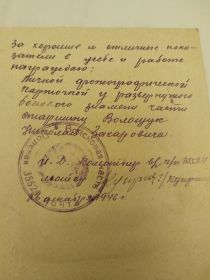 За хорошие и отличные пока-
затели в учебе и работе
награждаю:
Личной фотографической
карточкой у развернутого
боевого знамени части
старшину Волощук
Николая Захаровича.
И. Д. Командир
майор
декабря 1946 г.